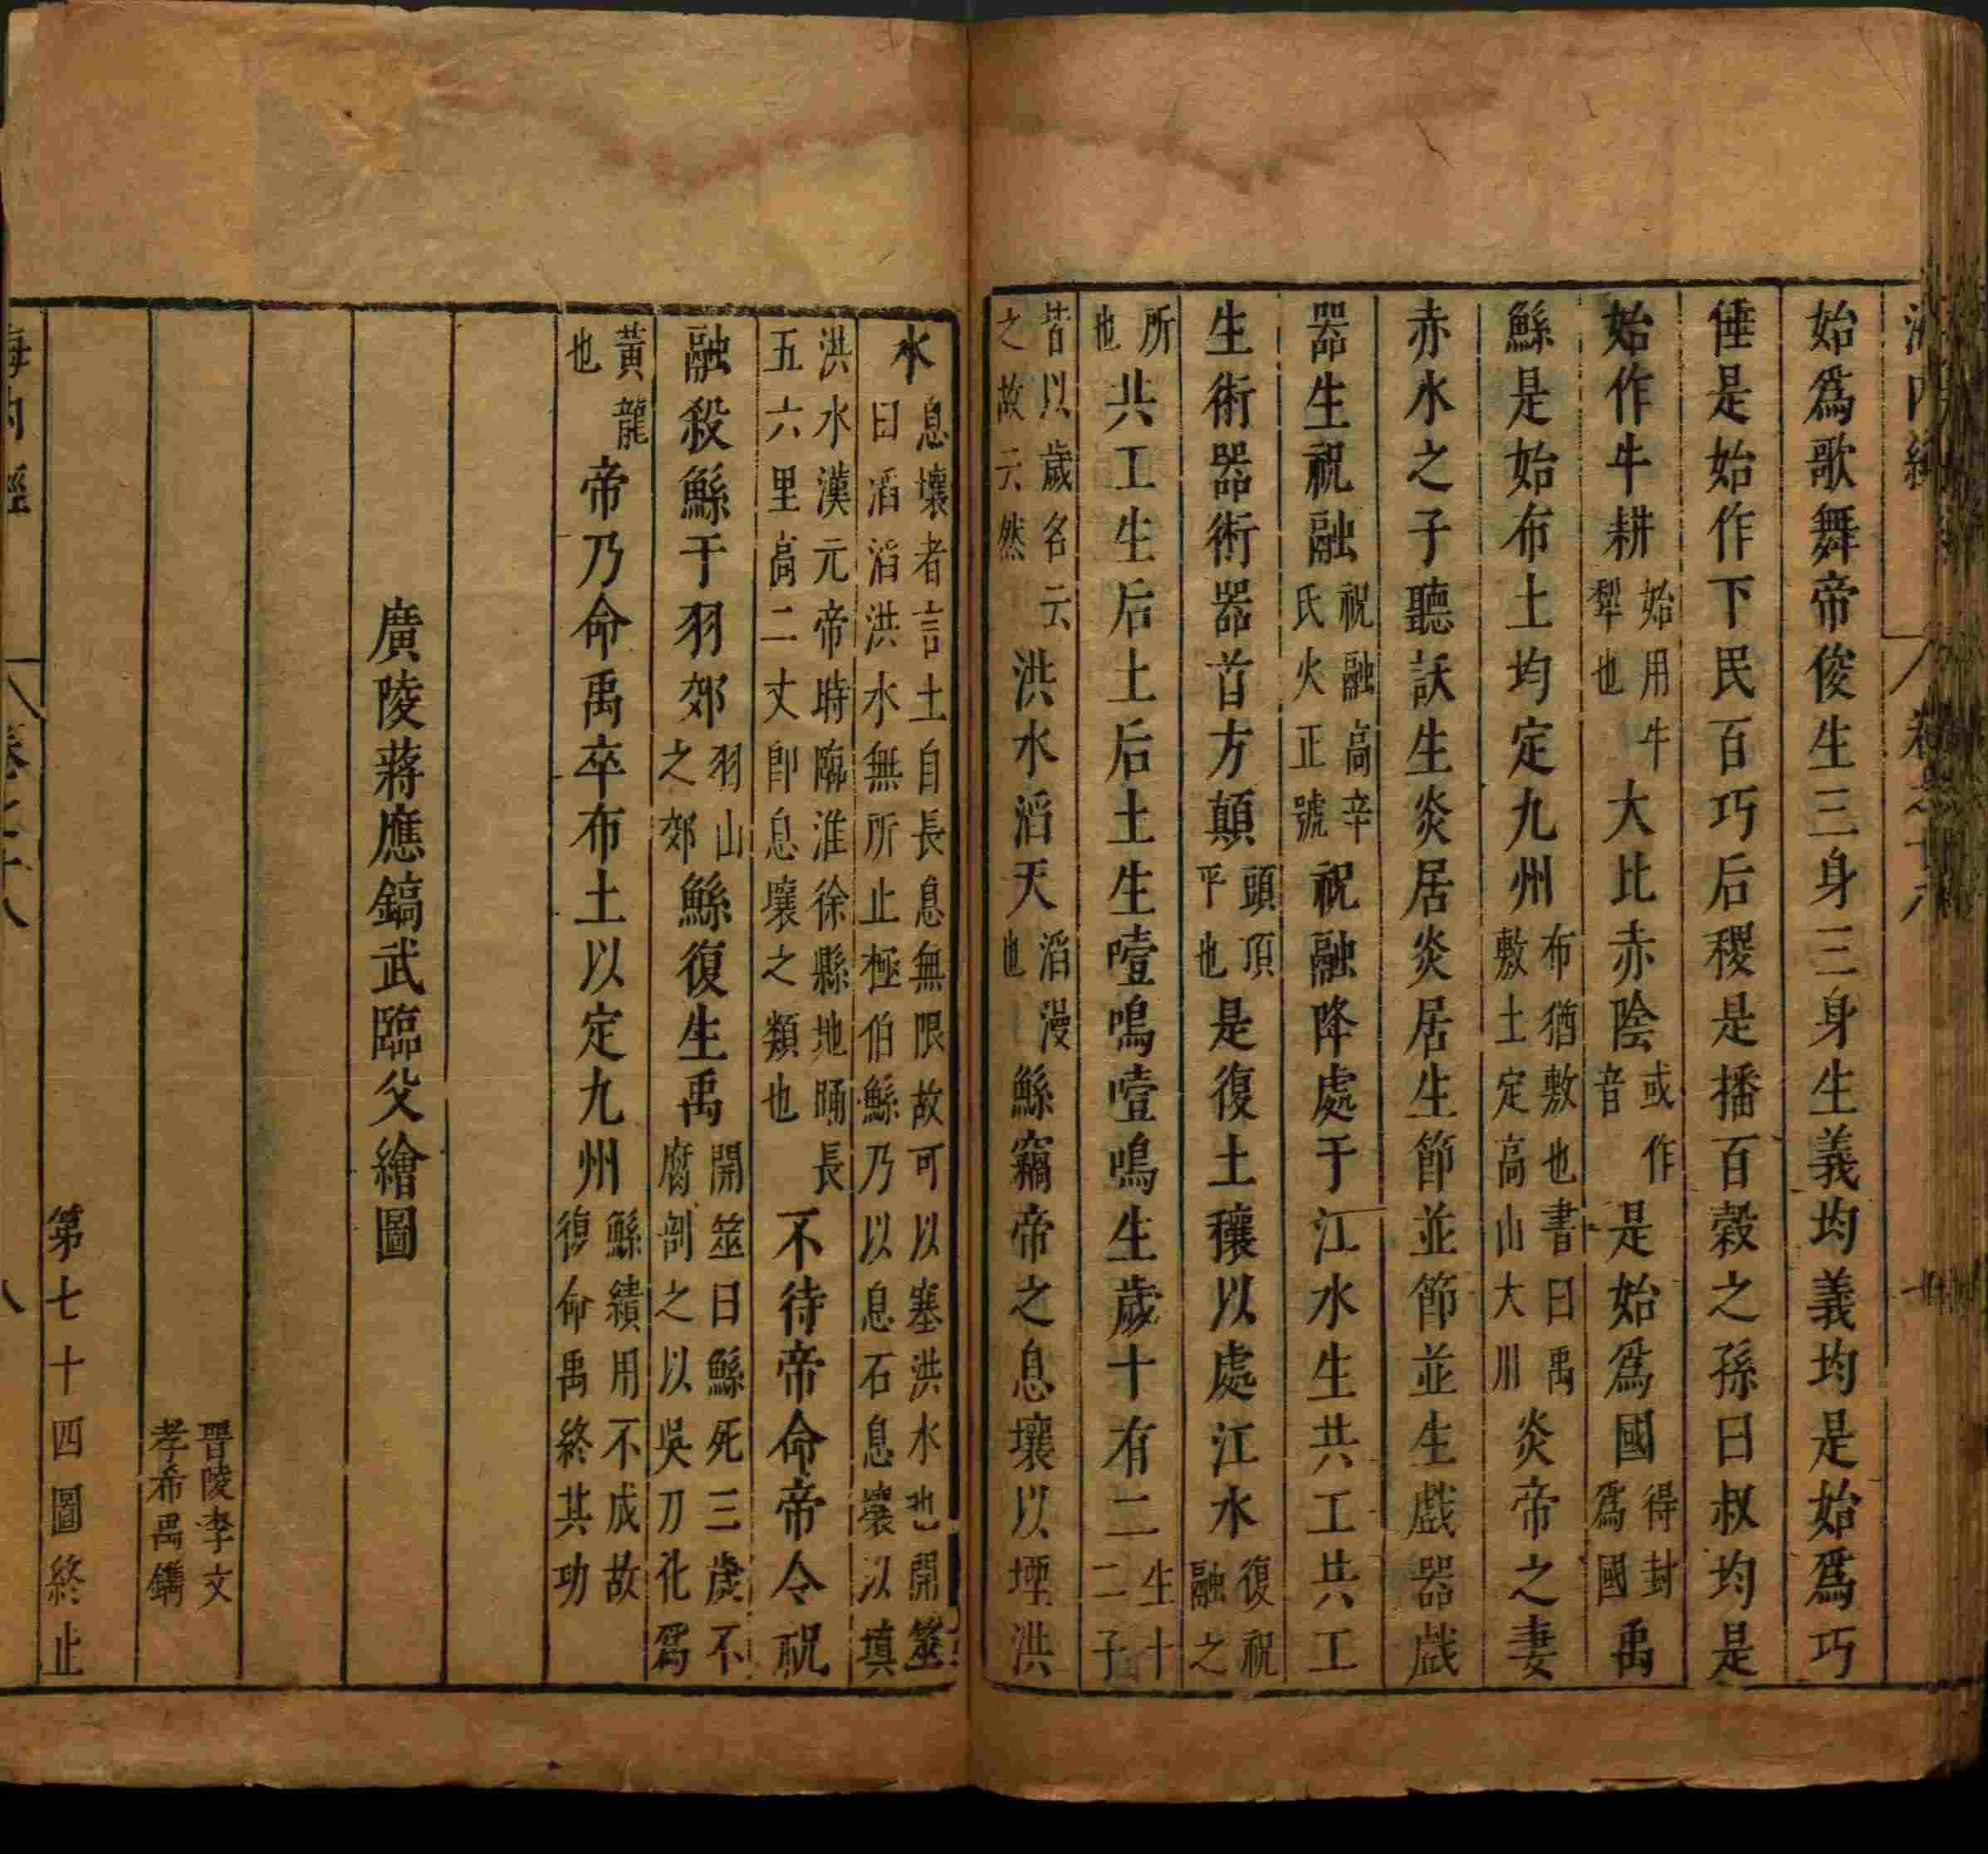 海內經 卷之十八
始爲歌舞帝俊生三身三身生義均義均是始爲巧
倕是始作下民百巧后稷是播百穀之孫曰叔均是
始作牛耕始用牛犂也大比赤陰或作音是始爲國得封爲國禹
鯀是始布土均定九州布猶敷也書曰禹敷土定高山大川炎帝之妻
赤水之子聽訞生炎居炎居生節並節並生戲器戲
器生祝融祝融高辛氏火正號祝融降處于江水生共工共工
生術器術器首方顛頭頂平也是復土穰以處江水復祝融之
所也共工生后土后土生噎鳴噎鳴生歲十有二生十二子
皆以歲名云之故云然洪水滔天滔漫也鯀竊帝之息壤以堙洪
水息壤者言土自長息無限故可以塞洪水也開筮曰滔滔洪水無所止極伯鯀乃以息石息壤以填
洪水漢元帝時臨淮徐縣地踊長五六里高二丈即息壤之類也不待帝命帝令祝
融殺鯀于羽郊羽山之郊鯀復生禹開筮曰鯀死三歲不腐剖之以吳刀化爲
黃龍也帝乃命禹卒布土以定九州鯀績用不成故復命禹終其功
廣陵蔣應鎬武臨父繪圖
晋陵李文
孝希禹鐫
第七十四圖終止
海內經 卷之十八